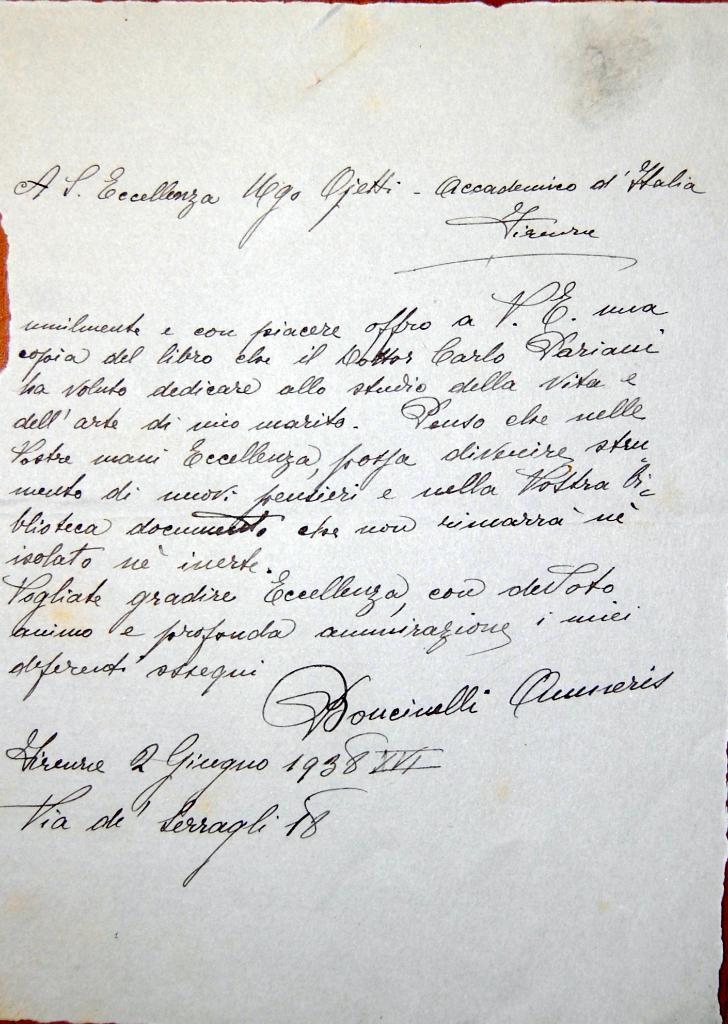 A S. Eccellenza Ugo Ojetti - Accademico d'Italia
Firenze
umilmente e con piacere offro a V. E. una
copia del libro che il Dottor Carlo Pariani
ha voluto dedicare allo studio della vita e
dell'arte di mio marito. Penso che nelle
Vostre mani Eccellenza, possa divenire stru-
mento di nuovi pensieri e nella Vostra bi-
blioteca documento che non rimarrà nè
isolato nè inerte.
Vogliate gradire Eccellenza, con devoto
animo e profonda ammirazione, i miei
deferenti ossequi
Boncinelli Amneris
Firenze 2 Giugno 1938 XVI
Via de' Serragli 18